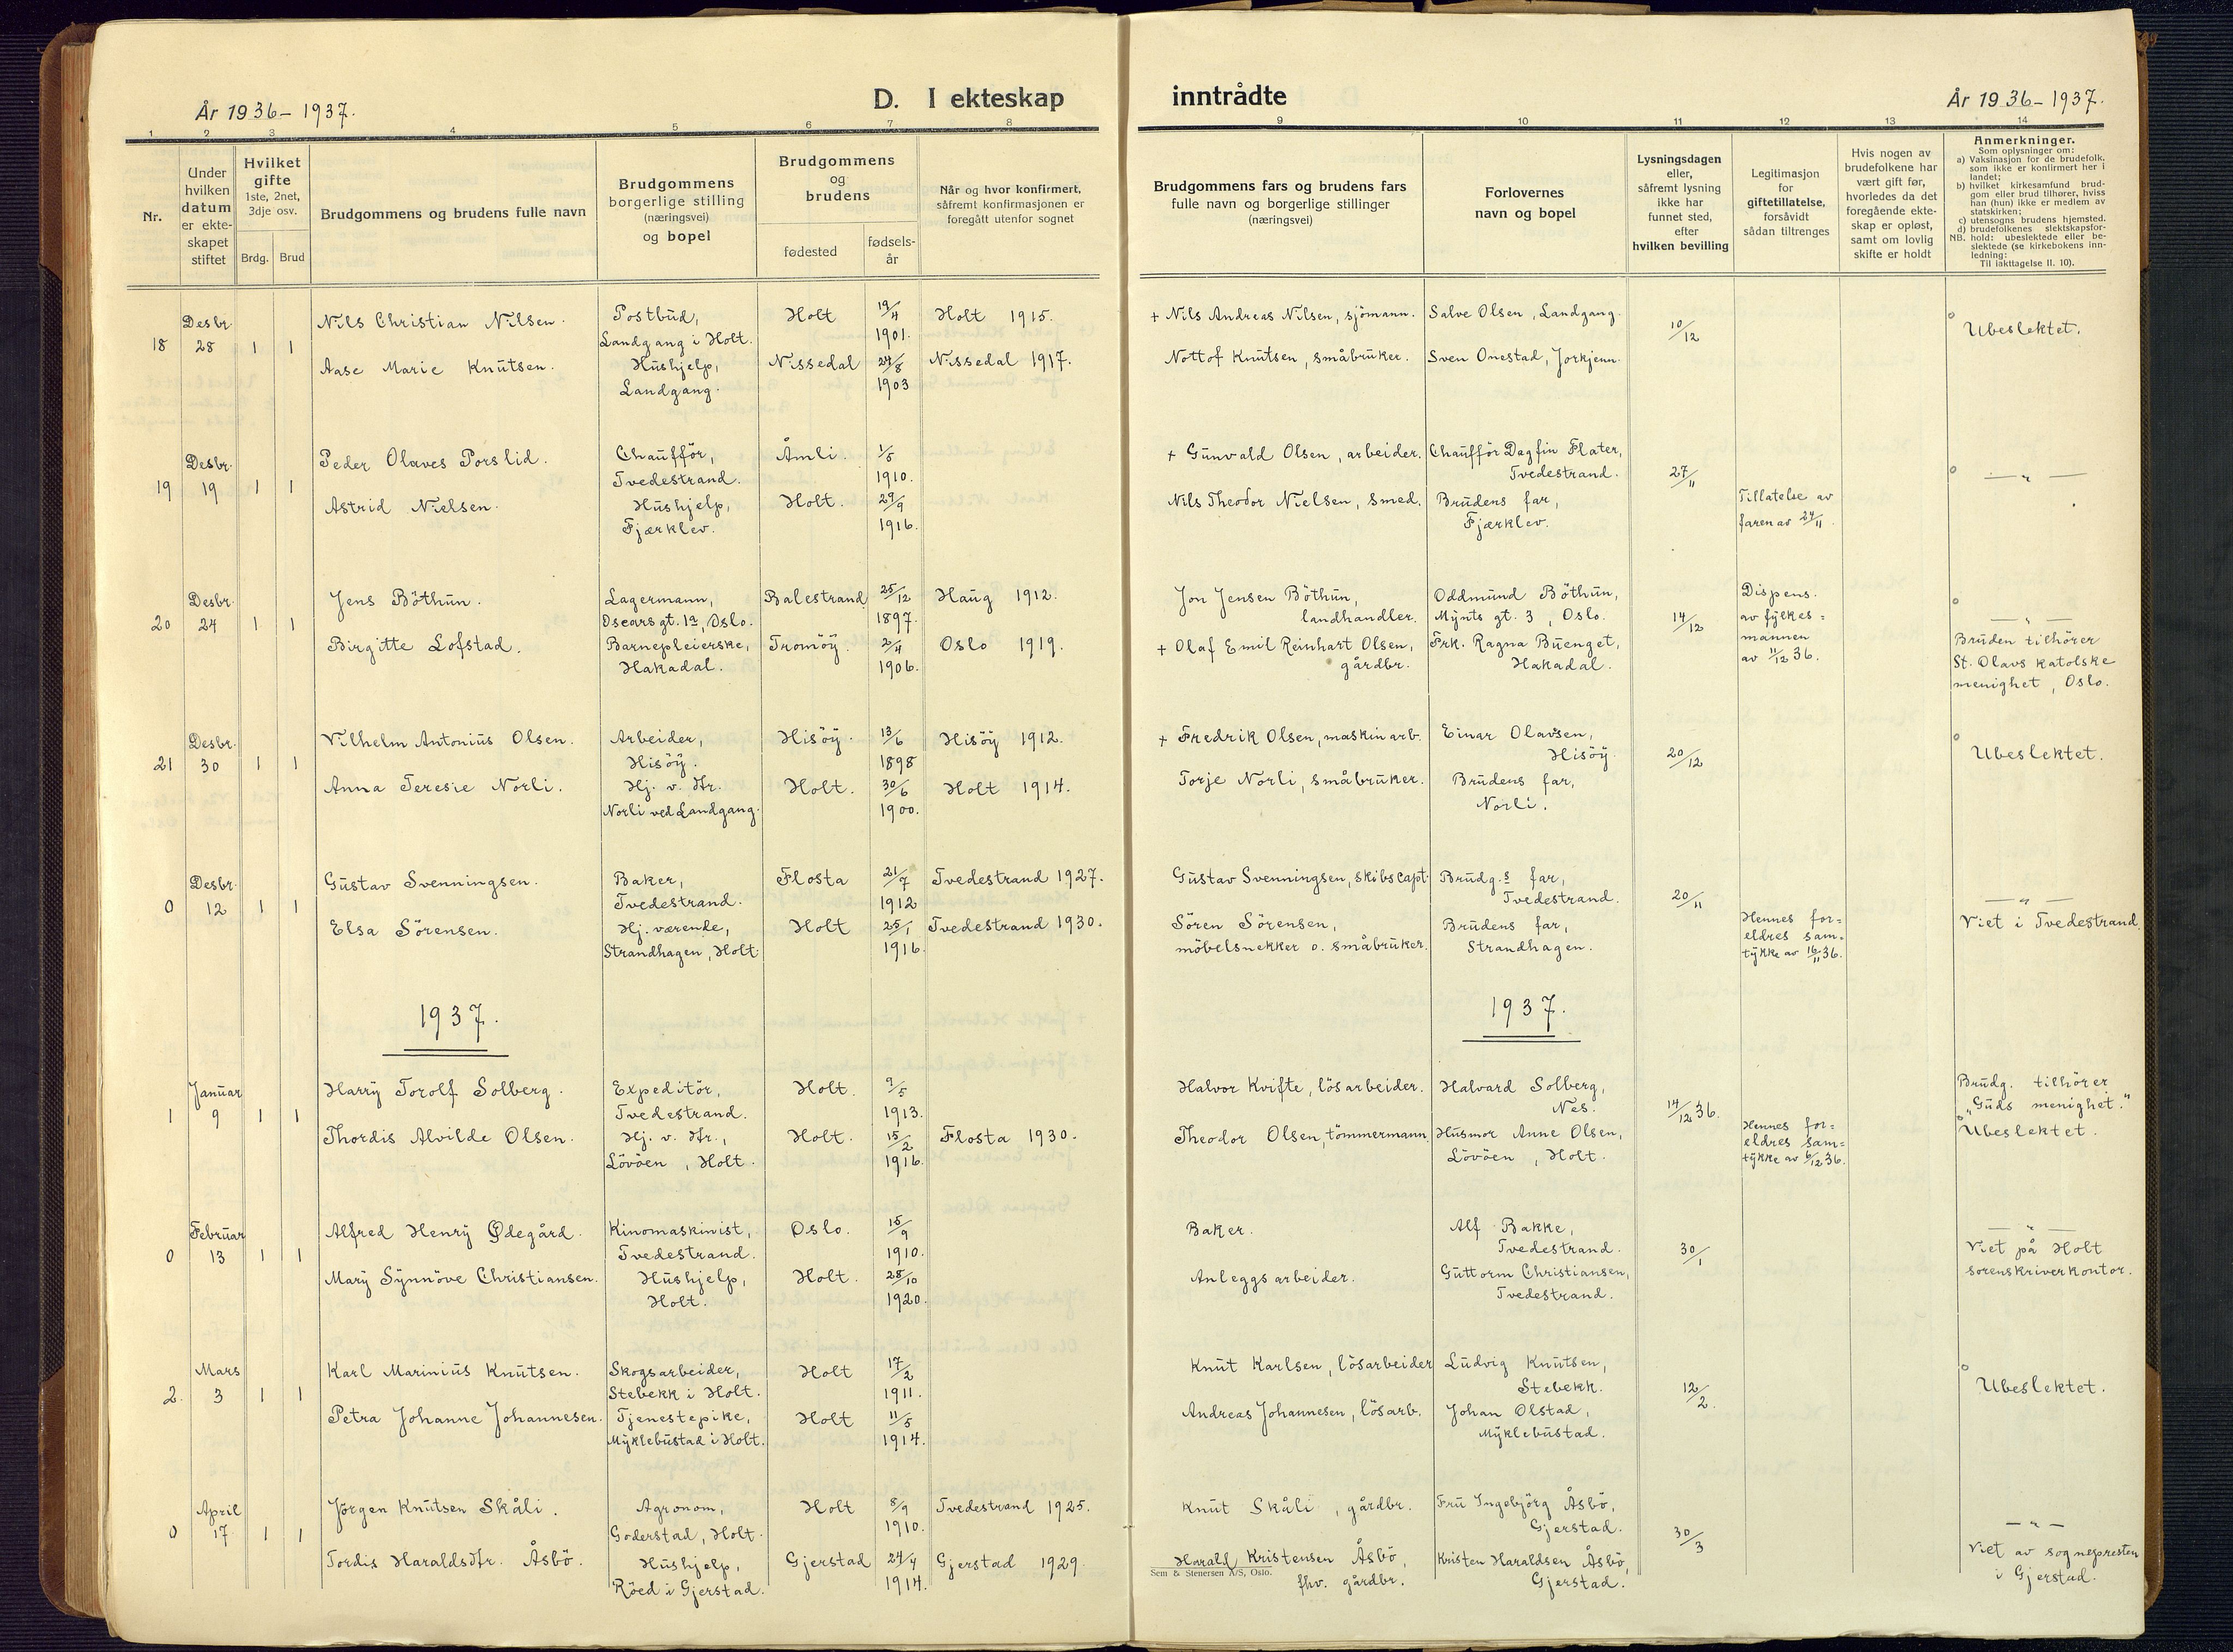 År 1936-1937.
D. I ekteskap
inntrådte
År 1936-1937.
1 2 3 4 5 6 7 8 9 10 11 12 13 14
Nr.
Under hvilken datum er ekte-skapet stiftet
Hvilket gifte
1ste, 2net, 3dje osv.
Brdg. Brud
Brudgommens og brudens fulle navn
Brudgommens borgerlige stilling
(næringsvei)
og bopel
Brudgommens og brudens
fødested
fødsels-år
Når og hvor konfirmert, såfremt konfirmasjonen er foregått utenfor sognet
Brudgommens fars og brudens fars fulle navn og borgerlige stillinger
(næringsvei)
Forlovernes navn og bopel
Lysningsdagen eller, såfremt lysning ikke har funnet sted, efter hvilken bevilling
Legitimasjon for giftetillatelse, forsåvidt sådan tiltrenges
Hvis nogen av brudefolkene har vært gift før, hvorledes da det foregående ekte-skap er opløst, samt om lovlig skifte er holdt
Anmerkninger.
Som oplysninger om:
a) Vaksinasjon for de brudefolk, som ikke er konfirmert her i landet;
b) hvilket kirkesamfund brud-gom eller brud tilhører, hviss han (hun) ikke er medlem av statskirken;
c) utensogns brudens hjemsted.
d) brudefolkenes slektskapsfor-
NB. hold: ubeslektede eller be-slektede (se kirkebokens inn-ledning:
Til iakttagelse II. 10).
18 Desbr. 28 1 1
Nils Christian Nilsen. Postbud, Landgang i Holt. Holt 19/4 1901. Holt 1915. + Nils Andreas Nilsen, sjömann. Salve Olsen, Landgang. 10/12 Ubeslektet.
Aase Marie Knutsen. Hushjelp, Landgang. Nissedal 24/8 1903 Nissedal 1917. Nottof Knutsen, småbruker. Sven Onestad, Jorkjenn.
19 Desbr. 19 1 1
Peder Olaves Porslid. Chaufför, Tvedestrand. Åmli. 1/5 1910. + Gunvald Olsen, arbeider. Chaufför Dagfin Flater, Tvedestrand. 27/11 — " —
Astrid Nielsen. Hushjelp, Fjærklev. Holt. 29/9 1916. Nils Theodor Nielsen, smed. Brudens far, Fjærklev. Tillatelse av faren av 24/11.
20 Desbr. 24 1 1
Jens Böthun. Lagermann, Oscars gt. 1a, Oslo. Balestrand 25/12 1897. Haug 1912. Jon Jensen Böthun, landhandler. Oddmund Böthun, Mynts gt. 3, Oslo. 14/12 Dispens. av fylkes=mannen av 11/12 36. — " —
Birgitte Lofstad. Barnepleierske, Hakadal. Tromöy. 2/11 1906. Oslo 1919. + Olaf Emil Reinhart Olsen, gårdbr. Frk. Ragna Buenget, Hakadal. Bruden tilhörer St. Olavs katolske menighet, Oslo.
21 Desbr. 30 1 1
Vilhelm Antonius Olsen. Arbeider, Hisöy. Hisöy. 13/6 1898 Hisöy 1912. + Fredrik Olsen, maskinarb. Einar Olavsen, Hisöy. 20/12 Ubeslektet.
Anna Teresie Norli. Hj. v. dtr. Norli ved Landgang. Holt. 30/6 1900. Holt 1914. Torje Norli, småbruker. Brudens far, Norli.
0 Desbr. 12 1 1
Gustav Svenningsen. Baker, Tvedestrand. Flosta 21/7 1912 Tvedestrand 1927. Gustav Svenningsen, skibscapt. Brudg.s far, Tvedestrand. 20/11 — " —
Elsa Sörensen. Hj. værende, Strandhagen, Holt. Holt 25/1 1916. Tvedestrand 1930. Sören Sörensen, möbelsnekker o. småbruker. Brudens far, Strandhagen. Hennes for=eldres sam=tykke av 16/11 36. Viet i Tvedestrand.
1937. 1937.
1 Januar 9 1 1
Harry Torolf Solberg. Expeditör, Tvedestrand. Holt. 9/5 1913. Halvor Kvifte, lösarbeider. Halvard Solberg, Nes. 14/12 36. Brudg. tilhörer "Guds menighet."
Thordis Alvilde Olsen. Hj. v. dtr., Lövöen, Holt. Holt. 15/2 1916. Flosta 1930. Theodor Olsen, tömmermann. Husmor Anne Olsen, Lövöen, Holt. Hennes for=eldres sam=tykke av 6/12 36. Ubeslektet.
0 Februar 13 1 1
Alfred Henry Ødegård. Kinomaskinist, Tvedestrand. Oslo. 15/9 1910. Baker. Alf Bakke, Tvedestrand. 30/1 — " —
Mary Synnöve Christiansen. Hushjelp, Holt. Holt. 28/10 1920. Anleggsarbeider. Guttorm Christiansen, Tvedestrand. Viet på Holt sorenskriverkontor.
2. Mars 3 1 1
Karl Marinius Knutsen. Skogsarbeider, Stebekk i Holt. Holt 17/2 1911. Knut Karlsen, lösarbeider Ludvig Knutsen, Stebekk. 12/2. Ubeslektet.
Petra Johanne Johannesen. Tjenestepike, Myklebustad i Holt. Holt 11/5 1914. Andreas Johannesen, lösarb. Johan Olstad, Myklebustad.
0 April 17 1 1
Jörgen Knutsen Skåli. Agronom, Goderstad, Holt. Holt 8/9 1910. Tvedestrand 1925. Knut Skåli, gårdbr. Fru Ingebjörg Åsbö, Gjerstad. 30/3 — " —
Tordis Haraldsdtr. Åsbö. Hushjelp, Röed i Gjerstad. Gjerstad 24/4 1914. Gjerstad 1929. Harald Kristensen Åsbö, fhv. gårdbr. Kristen Haraldsen Åsbö, Gjerstad. Viet av sognepresten i Gjerstad.
Sem & Stenersen A/S, Oslo.